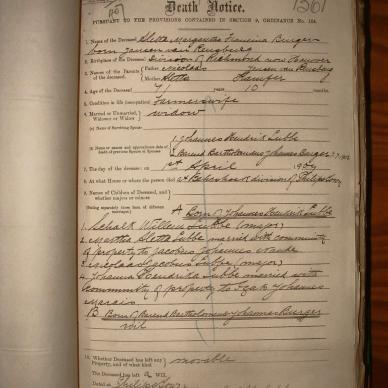 1361
Death Notice.
PURSUANT TO THE PROVISIONS CONTAINED IN SECTION 9, ORDINANCE No. 104.
1. Name of the Deceased Aletta Margaretha Francina Burger
born Jansen van Rensburg
2. Birthplace of the Deceased Division of Richmond now Hanover
3. Names of the Parents of the deceased. Father Nicolaas Jansen van Rensburg
Mother Aletta
4. Age of the Deceased 71 years 10 months
5. Condition in life (occupation) Farmers wife
6. Married or Unmarried, Widower or Widow widow
(a) Name of Surviving Spouse
(b) Name or names and approximate date of death of previous Spouse or Spouses
1. Johannes Hendrik Lubbe
2. Barend Bartholomeus Johannes Burger
7. The day of the decease 1st April 1904
8. At what House or where the person died At division of Philipstown
9. Names of Children of Deceased, and whether majors or minors
(Stating separately those born of different marriages.)
A Born of Johannes Hendrik Lubbe
1. Schalk Willem Lubbe (major)
2. Martha Aletta Lubbe married with community
of property to Jacobus Johannes
3. Nicolaas Jacobus Lubbe (major)
4. Johanna Hendrika Lubbe married with
community of property to Izak Johannes
Marais
B Born of Barend Bartholomeus Johannes Burger
nil
10. Whether Deceased has left any Property, and of what kind movable
The Deceased has left a Will.
Dated at Philipstown